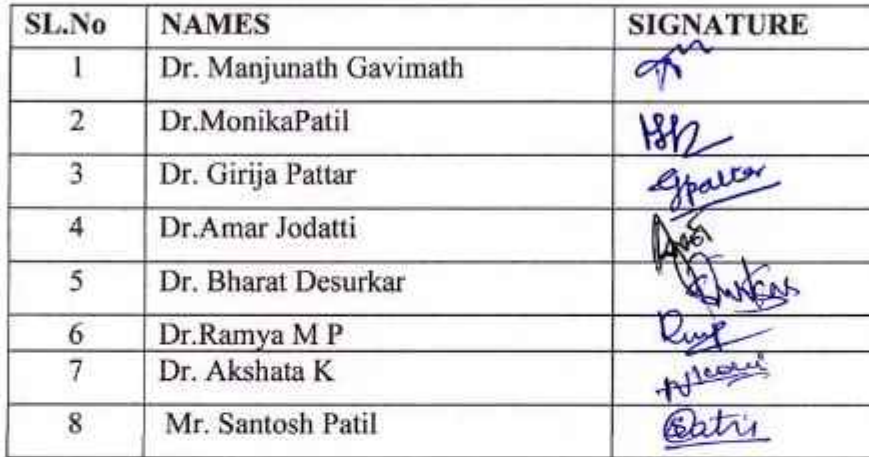 SL.No NAMES SIGNATURE
1 Dr. Manjunath Gavimath
2 Dr.MonikaPatil
3 Dr. Girija Pattar Gpattar
4 Dr.Amar Jodatti
5 Dr. Bharat Desurkar
6 Dr.Ramya M P
7 Dr. Akshata K
8 Mr. Santosh Patil